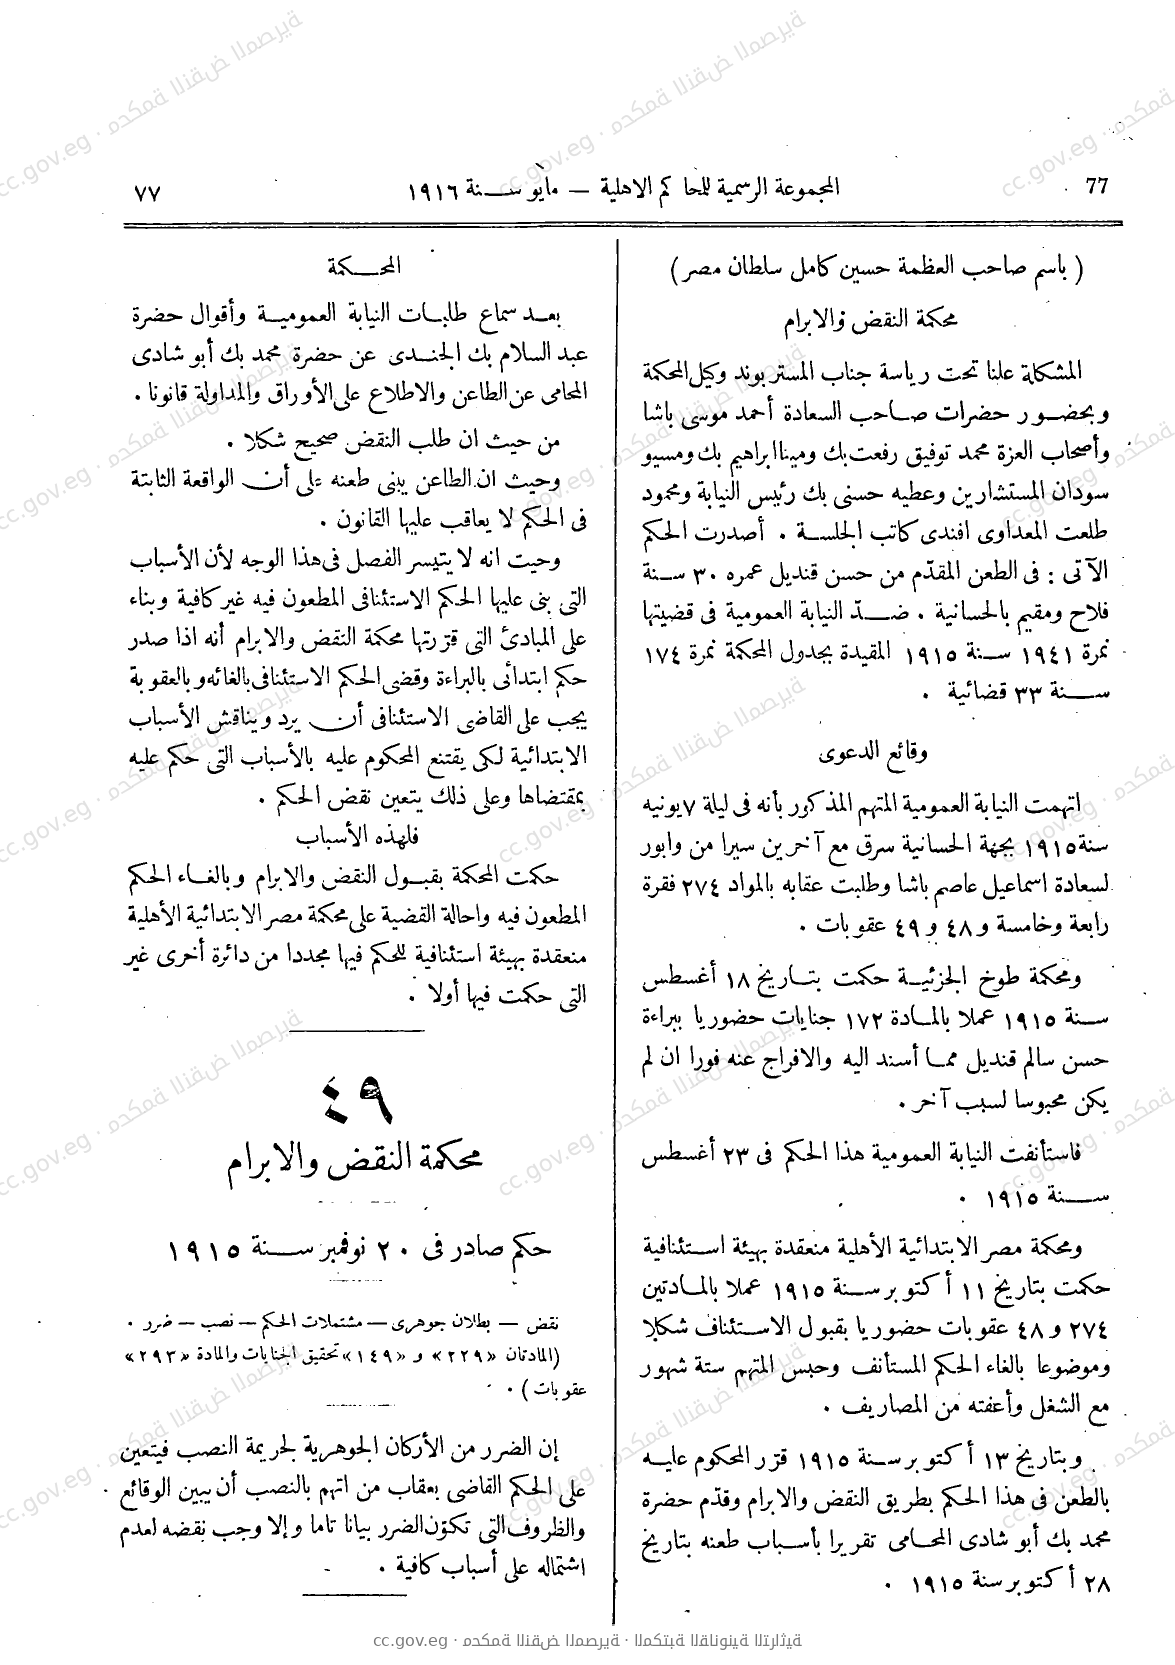 77
المجموعة الرسمية للمحاكم الاهلية — مايو سنة ١٩١٦
٧٧
( باسم صاحب العظمة حسين كامل سلطان مصر )
محكمة النقض والابرام
المشكلة علنا تحت رياسة جناب المستر بوند وكيل المحكمة
وبحضور حضرات صاحب السعادة أحمد موسى باشا
وأصحاب العزة محمد توفيق رفعت بك ومينا ابراهيم بك ومسيو
سودان المستشارين وعطيه حسنى بك رئيس النيابة ومحمود
طلعت المعداوى افندى كاتب الجلسة . أصدرت الحكم
الآتى : فى الطعن المقدّم من حسن قنديل عمره ٣٠ سنة
فلاح ومقيم بالحسانية . ضدّ النيابة العمومية فى قضيتها
نمرة ١٩٤١ سنة ١٩١٥ المقيدة بجدول المحكمة نمرة ١٧٤
سنة ٣٣ قضائية .
وقائع الدعوى
اتهمت النيابة العمومية المتهم المذكور بأنه فى ليلة ٧ يونيه
سنة ١٩١٥ بجهة الحسانية سرق مع آخرين سيرا من وابور
لسعادة اسماعيل عاصم باشا وطلبت عقابه بالمواد ٢٧٤ فقرة
رابعة وخامسة و ٤٨ و ٤٩ عقوبات .
ومحكمة طوخ الجزئية حكمت بتاريخ ١٨ أغسطس
سنة ١٩١٥ عملا بالمادة ١٧٢ جنايات حضوريا ببراءة
حسن سالم قنديل مما أسند اليه والافراج عنه فورا ان لم
يكن محبوسا لسبب آخر .
فاستأنفت النيابة العمومية هذا الحكم فى ٢٣ أغسطس
سنة ١٩١٥ .
ومحكمة مصر الابتدائية الأهلية منعقدة بهيئة استئنافية
حكمت بتاريخ ١١ أكتوبر سنة ١٩١٥ عملا بالمادتين
٢٧٤ و ٤٨ عقوبات حضوريا بقبول الاستئناف شكلا
وموضوعا بالغاء الحكم المستأنف وحبس المتهم ستة شهور
مع الشغل وأعفته من المصاريف .
وبتاريخ ١٣ أكتوبر سنة ١٩١٥ قرّر المحكوم عليه
بالطعن فى هذا الحكم بطريق النقض والابرام وقدّم حضرة
محمد بك أبو شادى المحامى تقريرا بأسباب طعنه بتاريخ
٢٨ أكتوبر سنة ١٩١٥ .
المحكمة
بعد سماع طلبات النيابة العمومية وأقوال حضرة
عبد السلام بك الجندى عن حضرة محمد بك أبو شادى
المحامى عن الطاعن والاطلاع على الأوراق والمداولة قانونا .
من حيث ان طلب النقض صحيح شكلا .
وحيث ان الطاعن يبنى طعنه على أن الواقعة الثابتة
فى الحكم لا يعاقب عليها القانون .
وحيث انه لا يتيسر الفصل فى هذا الوجه لأن الأسباب
التى بنى عليها الحكم الاستئنافى المطعون فيه غير كافية وبناء
على المبادئ التى قرّرتها محكمة النقض والابرام أنه اذا صدر
حكم ابتدائى بالبراءة وقضى الحكم الاستئنافى بالغائه وبالعقوبة
يجب على القاضى الاستئنافى أن يرد ويناقش الأسباب
الابتدائية لكى يقتنع المحكوم عليه بالأسباب التى حكم عليه
بمقتضاها وعلى ذلك يتعين نقض الحكم .
فلهذه الأسباب
حكمت المحكمة بقبول النقض والابرام وبالغاء الحكم
المطعون فيه واحالة القضية على محكمة مصر الابتدائية الأهلية
منعقدة بهيئة استئنافية للحكم فيها مجددا من دائرة أخرى غير
التى حكمت فيها أولا .
٤٩
محكمة النقض والابرام
حكم صادر فى ٢٠ نوفمبر سنة ١٩١٥
نقض — بطلان جوهرى — مشتملات الحكم — نصب — ضرر .
(المادتان «٢٢٩» و «١٤٩» تحقيق الجنايات والمادة «٢٩٣»
عقوبات) .
إن الضرر من الأركان الجوهرية لجريمة النصب فيتعين
على الحكم القاضى بعقاب من اتهم بالنصب أن يبين الوقائع
والظروف التى تكوّن الضرر بيانا تاما وإلا وجب نقضه لعدم
اشتماله على أسباب كافية .
cc.gov.eg · محكمة النقض المصرية · المكتبة القانونية التراثية